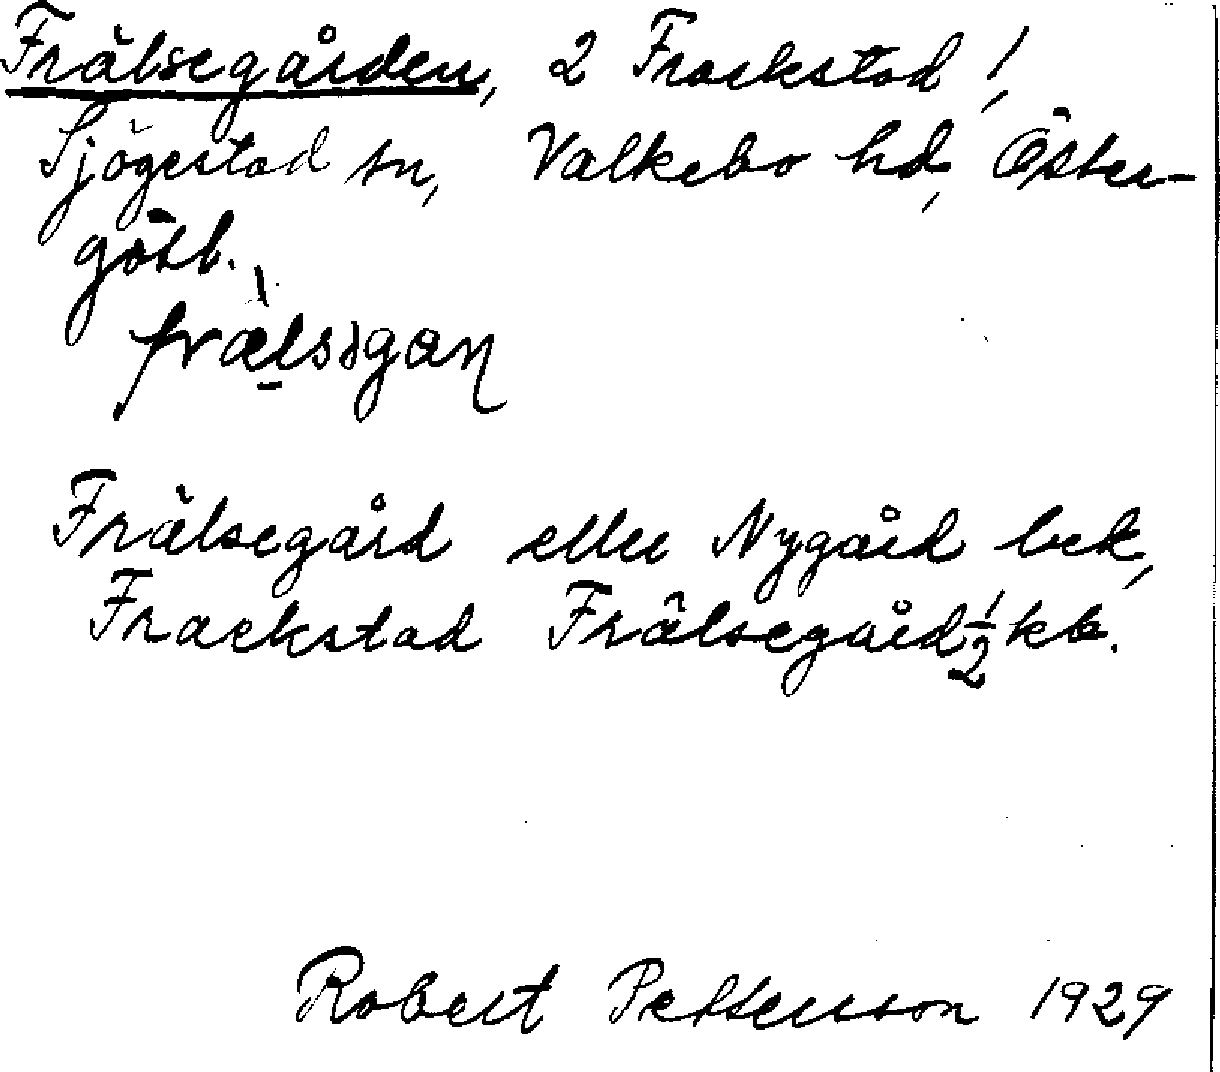 Frälsegården, 2 Frackstad!,
Sjögestad sn, Valkebo hd, Öster-
götl.
Frälsegård eller Nygård bek,
Frackstad Frälsegård ½ kb.
Robert Pettersson 1929